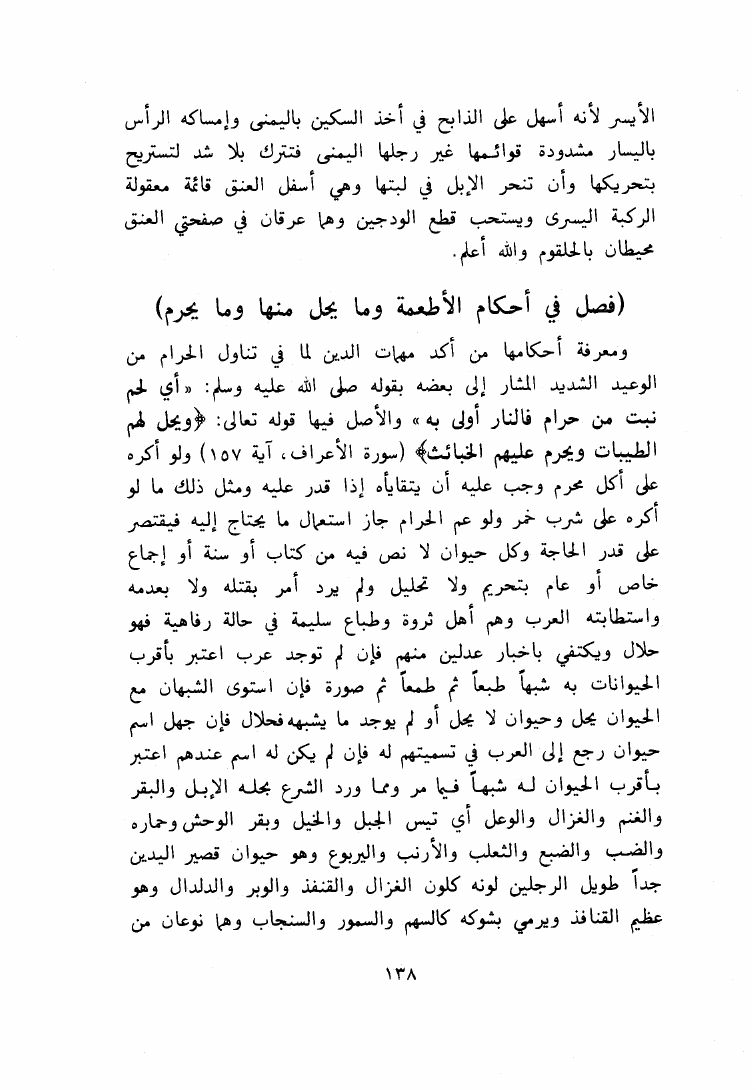 الأيسر لأنه أسهل على الذابح في أخذ السكين باليمنى وإمساكه الرأس
باليسار مشدودة قوائمها غير رجلها اليمنى فتترك بلا شد لتستريح
بتحريكها وأن تنحر الإبل في لبتها وهي أسفل العنق قائمة معقولة
الركبة اليسرى ويستحب قطع الودجين وهما عرقان في صفحتي العنق
محيطان بالحلقوم والله أعلم.
(فصل في أحكام الأطعمة وما يحل منها وما يحرم)
ومعرفة أحكامها من أكد مهمات الدين لما في تناول الحرام من
الوعيد الشديد المشار إلى بعضه بقوله صلى الله عليه وسلم: «أي لحم
نبت من حرام فالنار أولى به» والأصل فيها قوله تعالى: ﴿ويحل لهم
الطيبات ويحرم عليهم الخبائث﴾ (سورة الأعراف، آية ١٥٧) ولو أكره
على أكل محرم وجب عليه أن يتقايأه إذا قدر عليه ومثل ذلك ما لو
أكره على شرب خمر ولو عم الحرام جاز استعمال ما يحتاج إليه فيقتصر
على قدر الحاجة وكل حيوان لا نص فيه من كتاب أو سنة أو إجماع
خاص أو عام بتحريم ولا تحليل ولم يرد أمر بقتله ولا بعدمه
واستطابته العرب وهم أهل ثروة وطباع سليمة في حالة رفاهية فهو
حلال ويكتفي باخبار عدلين منهم فإن لم توجد عرب اعتبر بأقرب
الحيوانات به شبهاً طبعاً ثم طمعاً ثم صورة فإن استوى الشبهان مع
الحيوان يحل وحيوان لا يحل أو لم يوجد ما يشبهه فحلال فإن جهل اسم
حيوان رجع إلى العرب في تسميتهم له فإن لم يكن له اسم عندهم اعتبر
بأقرب الحيوان له شبهاً فيما مر ومما ورد الشرع بحله الإبل والبقر
والغنم والغزال والوعل أي تيس الجبل والخيل وبقر الوحش وحماره
والضب والضبع والثعلب والأرنب واليربوع وهو حيوان قصير اليدين
جداً طويل الرجلين لونه كلون الغزال والقنفذ والوبر والدلدال وهو
عظيم القنافذ ويرمي بشوكه كالسهم والسمور والسنجاب وهما نوعان من
١٣٨